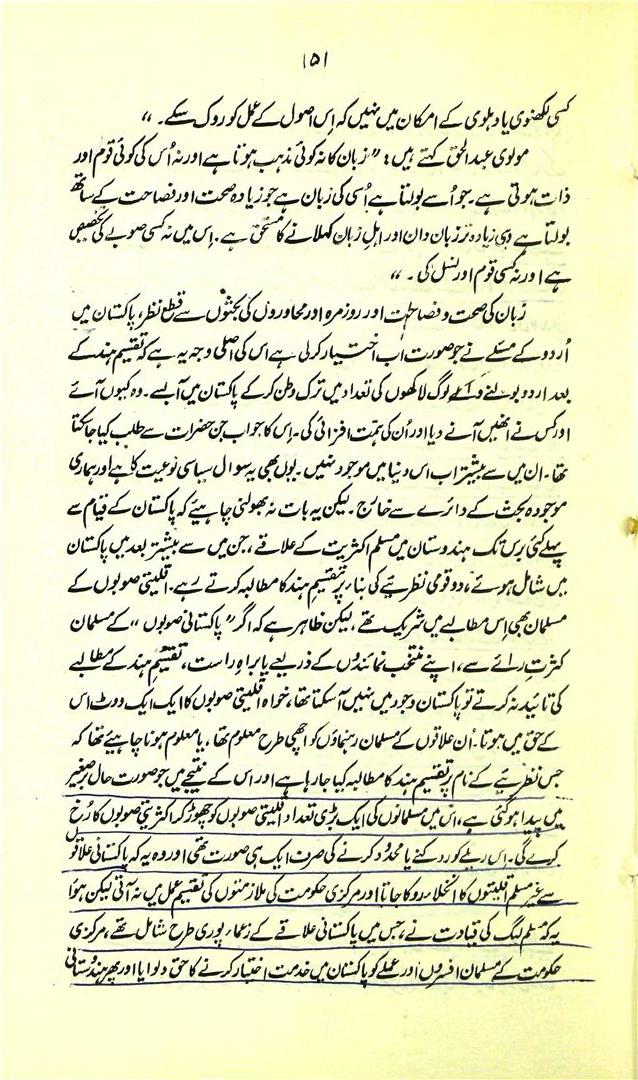 ۱۵۱
کسی لکھنوی یا دہلوی کے امکان میں نہیں کہ اِس اصول کے عمل کو روک سکے۔“
مولوی عبدالحق کہتے ہیں: ”زبان کا نہ کوئی مذہب ہوتا ہے اور نہ اُس کی کوئی قوم اور
ذات ہوتی ہے۔ جو اُسے بولتا ہے اُسی کی زبان ہے جو زیادہ صحت اور فصاحت کے ساتھ
بولتا ہے وہی زیادہ تر زبان دان اور اہلِ زبان کہلانے کا مستحق ہے۔ اِس میں نہ کسی صوبے کی تخصیص
ہے اور نہ کسی قوم اور نسل کی۔“
زبان کی صحت و فصاحت اور روزمرہ اور محاوروں کی بحثوں سے قطع نظر، پاکستان میں
اُردو کے مسئلے نے جو صورت اب اختیار کر لی ہے اس کی اصلی وجہ یہ ہے کہ تقسیم ہند کے
بعد اردو بولنے والے لوگ لاکھوں کی تعداد میں ترک وطن کر کے پاکستان میں آ بسے۔ وہ کیوں آئے
اور کس نے انھیں آنے دیا اور اُن کی ہمت افزائی کی۔ اِس کا جواب جن حضرات سے طلب کیا جا سکتا
تھا۔ ان میں سے بیشتر اب اس دنیا میں موجود نہیں۔ یوں بھی یہ سوال سیاسی نوعیت کا ہے اور ہماری
موجودہ بحث کے دائرے سے خارج۔ لیکن یہ بات نہ بھولنی چاہیئے کہ پاکستان کے قیام سے
پہلے کئی برس تک ہندوستان میں مسلم اکثریت کے علاقے، جن میں سے بیشتر بعد میں پاکستان
میں شامل ہوئے، دو قومی نظریئے کی بناء پر تقسیمِ ہند کا مطالبہ کرتے رہے۔ اقلیتی صوبوں کے
مسلمان بھی اِس مطالبے میں شریک تھے، لیکن ظاہر ہے کہ اگر ”پاکستانی صوبوں“ کے مسلمان
کثرتِ رائے سے، اپنے منتخب نمائندوں کے ذریعے یا براہِ راست، تقسیم ہند کے مطالبے
کی تائید نہ کرتے تو پاکستان وجود میں نہیں آ سکتا تھا، خواہ اقلیتی صوبوں کا ایک ایک ووٹ اس
کے حق میں ہوتا۔ اُن علاقوں کے مسلمان رہنماؤں کو اچھی طرح معلوم تھا، یا معلوم ہونا چاہیئے تھا کہ
جس نظریئے کے نام پر تقسیم ہند کا مطالبہ کیا جا رہا ہے اور اس کے نتیجے میں جو صورت حال برصغیر
میں پیدا ہو گئی ہے، اس میں مسلمانوں کی ایک بڑی تعداد اقلیتی صوبوں کو چھوڑ کر اکثریتی صوبوں کا رُخ
کرے گی۔ اِس ریلے کو روکنے یا محدود کرنے کی صرف ایک ہی صورت تھی اور وہ یہ کہ پاکستانی علاقوں
سے غیر مسلم اقلیتوں کا انخلاء روکا جاتا اور مرکزی حکومت کی ملازمتوں کی تقسیم عمل میں نہ آتی لیکن ہوا
یہ کہ مسلم لیگ کی قیادت نے، جس میں پاکستانی علاقے کے زعماء پوری طرح شامل تھے، مرکزی
حکومت کے مسلمان افسروں اور عملے کو پاکستان میں خدمت اختیار کرنے کا حق دلوایا اور پھر ہندوستانی